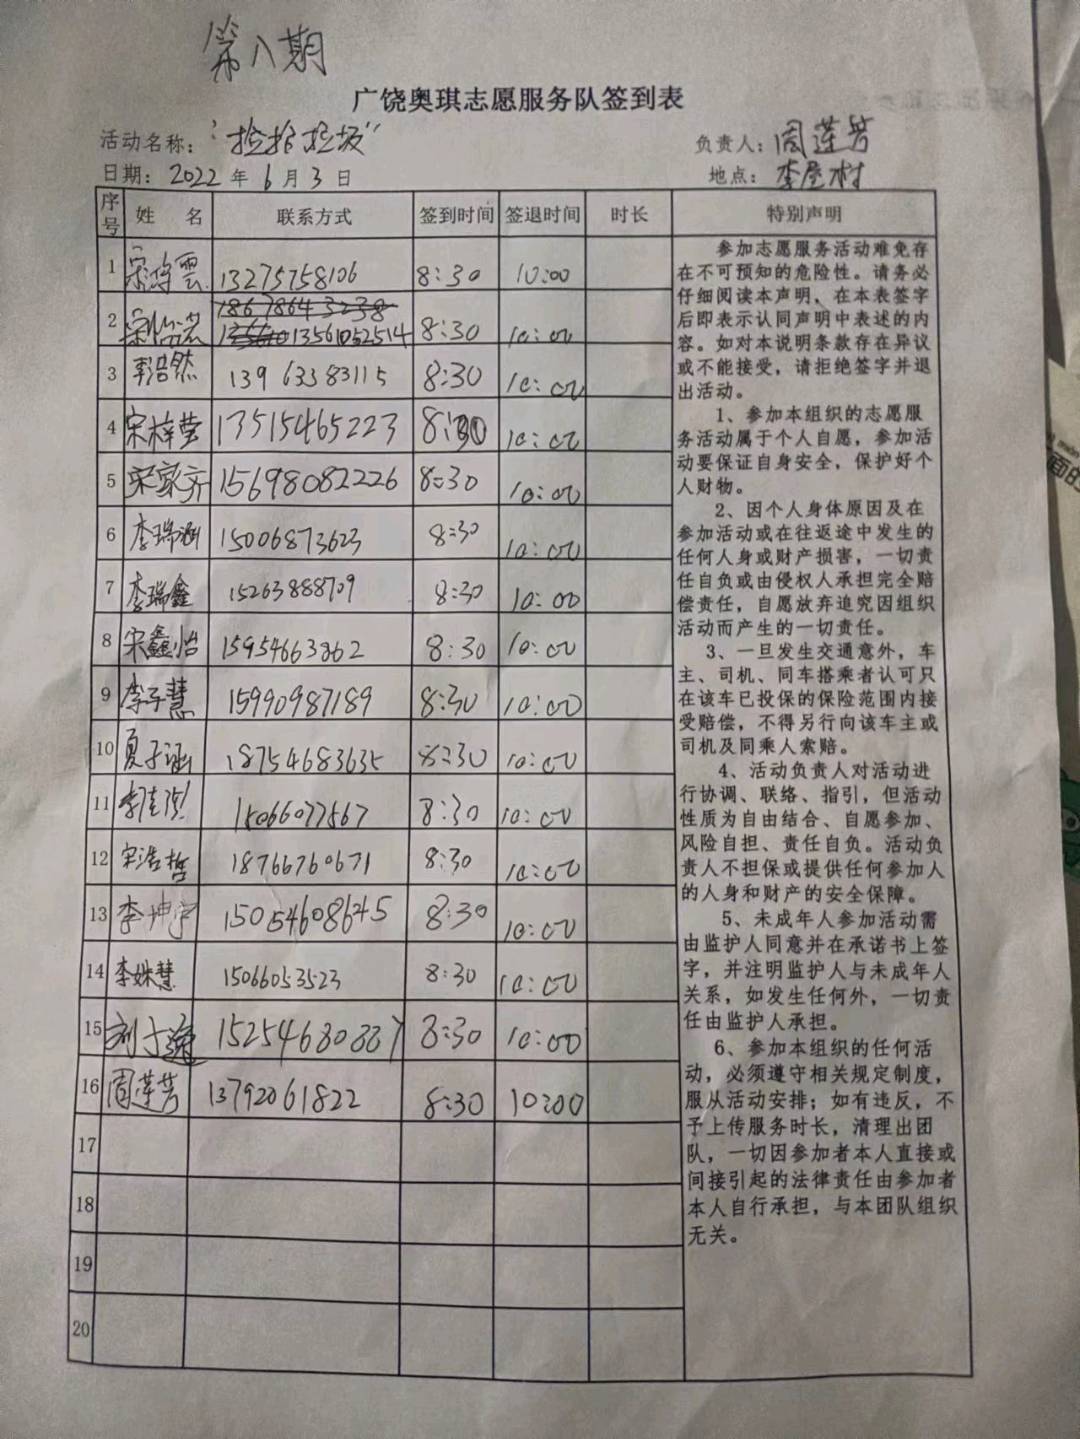 第八期
广饶奥琪志愿服务队签到表
活动名称：“捡拾垃圾”
负责人：周莲芳
日期：2022年6月3日
地点：李屋村
序号 姓名 联系方式 签到时间 签退时间 时长 特别声明
1 13275758106 8:30 10:00
2 18678643238
13561052514 8:30 10:00
3 李浩然 13963383115 8:30 10:00
4 宋梓莹 13515465223 8:30 10:00
5 宋家齐 15698082226 8:30 10:00
6 李瑞涵 15006873623 8:30 10:00
7 李瑞鑫 15263888709 8:30 10:00
8 宋鑫怡 15954663862 8:30 10:00
9 李子慧 15990987189 8:30 10:00
10 夏子涵 18754683635 8:30 10:00
11 15066077567 8:30 10:00
12 宋浩哲 18766760671 8:30 10:00
13 李坤宇 15054608645 8:30 10:00
14 李姝慧 15066053523 8:30 10:00
15 8:30 10:00
16 周莲芳 13792061822 8:30 10:00
17
18
19
20
参加志愿服务活动难免存
在不可预知的危险性。请务必
仔细阅读本声明，在本表签字
后即表示认同声明中表述的内
容。如对本说明条款存在异议
或不能接受，请拒绝签字并退
出活动。
1、参加本组织的志愿服
务活动属于个人自愿，参加活
动要保证自身安全，保护好个
人财物。
2、因个人身体原因及在
参加活动或在往返途中发生的
任何人身或财产损害，一切责
任自负或由侵权人承担完全赔
偿责任，自愿放弃追究因组织
活动而产生的一切责任。
3、一旦发生交通意外，车
主、司机、同车搭乘者认可只
在该车已投保的保险范围内接
受赔偿，不得另行向该车主或
司机及同乘人索赔。
4、活动负责人对活动进
行协调、联络、指引，但活动
性质为自由结合、自愿参加、
风险自担、责任自负。活动负
责人不担保或提供任何参加人
的人身和财产的安全保障。
5、未成年人参加活动需
由监护人同意并在承诺书上签
字，并注明监护人与未成年人
关系，如发生任何外，一切责
任由监护人承担。
6、参加本组织的任何活
动，必须遵守相关规定制度，
服从活动安排；如有违反，不
予上传服务时长，清理出团
队，一切因参加者本人直接或
间接引起的法律责任由参加者
本人自行承担，与本团队组织
无关。